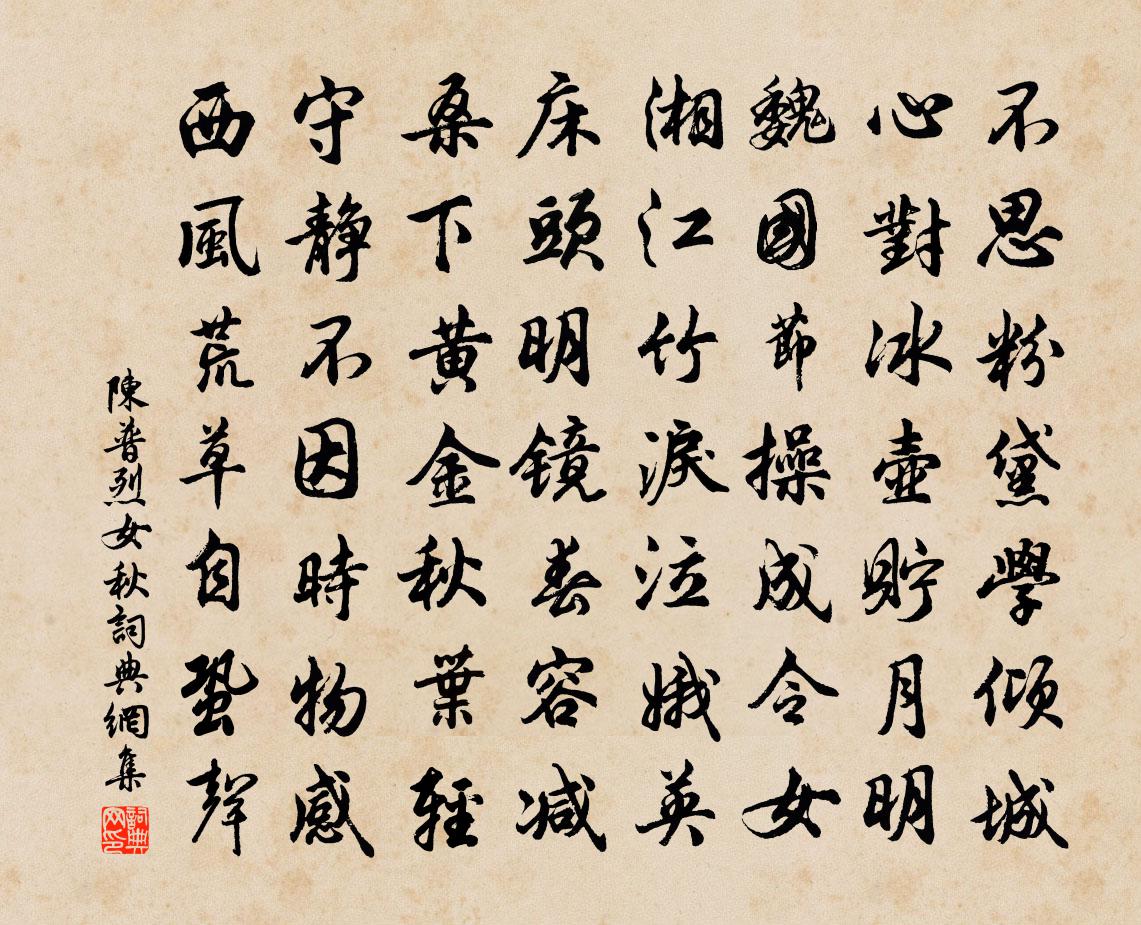 不思粉黛學傾城
心對冰壺貯月明
魏國節操成令女
湘江竹淚泣娥英
床頭明鏡春容減
桑下黃金秋葉輕
守靜不因時物感
西風荒草自蛩聲
陳普烈女秋詞典網集
詞典网印